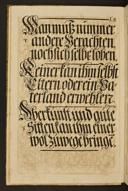 Man muß nimmer
ander Verachten,
noch sich selbs loben,
Keiner kan ihm selbst
Eltern oder ein Va-
terland erwehlen.
Aber kunst und gute
Sitten kan ihm einer
wol zuwege bringe.